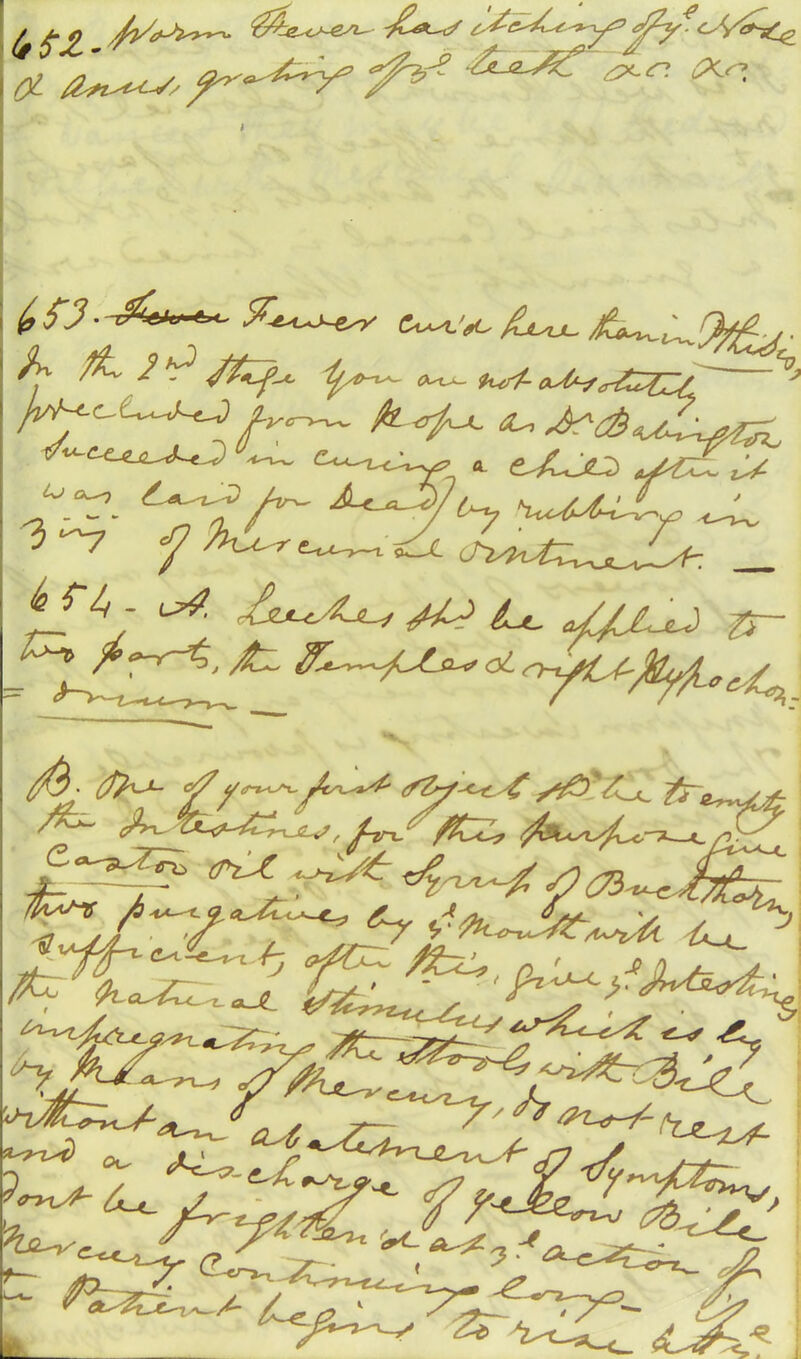 652. Worm Fever has itching of yᵉ Nose
& Anus, grating of yᵉ teeth &c. &c.
653. Fever Fewer cur'd here than in Pthisis,
In the 2nd Stage You are not absolutely
precluded from Hope as Dr Babington
succeeded in curing a child after it
was laid for Dead, by rubbing in
of Mercurial Ointment. —
654 - A. Leeches shd be applied to
two parts, the Temples & right Hypochon=
= drium —
B. One of your first object shd be to empty
the Intestines, for this purpose give
Castor oil with Syrup of Buckthorn,
two purgatives by yᵉ Mouth will be
sufficient, after this, give yᵉ Intestines
the natural Stimulus which is by
impregnating the Stools with Bile
by Means of Mercury, do not rest
without an abatement of Symptoms,
and a discharge of yellow Bile
Dont be frighten'd at yᵉ action of
Mercury Continuing long. If
Patient begins to rise at yᵉ